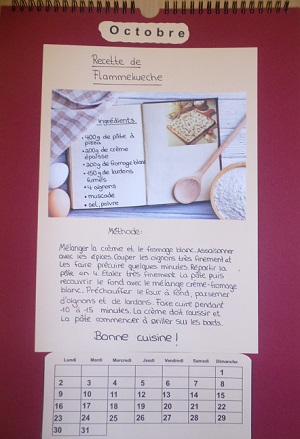 Octobre
Recette de
Flammekueche
Ingrédients
• 400g de pâte à
pizza
• 200g de crème
épaisse
• 200g de fromage blanc
• 150g de lardons
fumés
• 4 oignons
• muscade
• sel, poivre
Méthode:
Mélanger la crème et le fromage blanc. Assaisonner
avec les épices. Couper les oignons très finement et
les faire précuire quelques minutes. Répartir la
pâte en 4. Etaler très finement. La pâte puis
recouvrir le fond avec le mélange crème-fromage
blanc. Préchauffer le four à fond, parsemer
d'oignons et de lardons. Faire cuire pendant
10 à 15 minutes. La crème doit roussir et
la pâte commencer à griller sur les bords.
Bonne cuisine!
Lundi Mardi Mercredi Jeudi Vendredi Samedi Dimanche
1
2 3 4 5 6 7 8
9 10 11 12 13 14 15
16 17 18 19 20 21 22
23 24 25 26 27 28 29
30 31